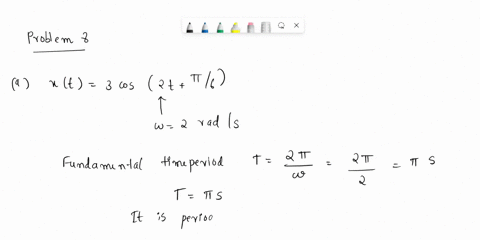 Problem 8
(a) x(t) = 3 cos (2t + π/6)
↑
ω = 2 rad/s
Fundamental timeperiod T = 2π/ω = 2π/2 = π s
T = π s
It is perio